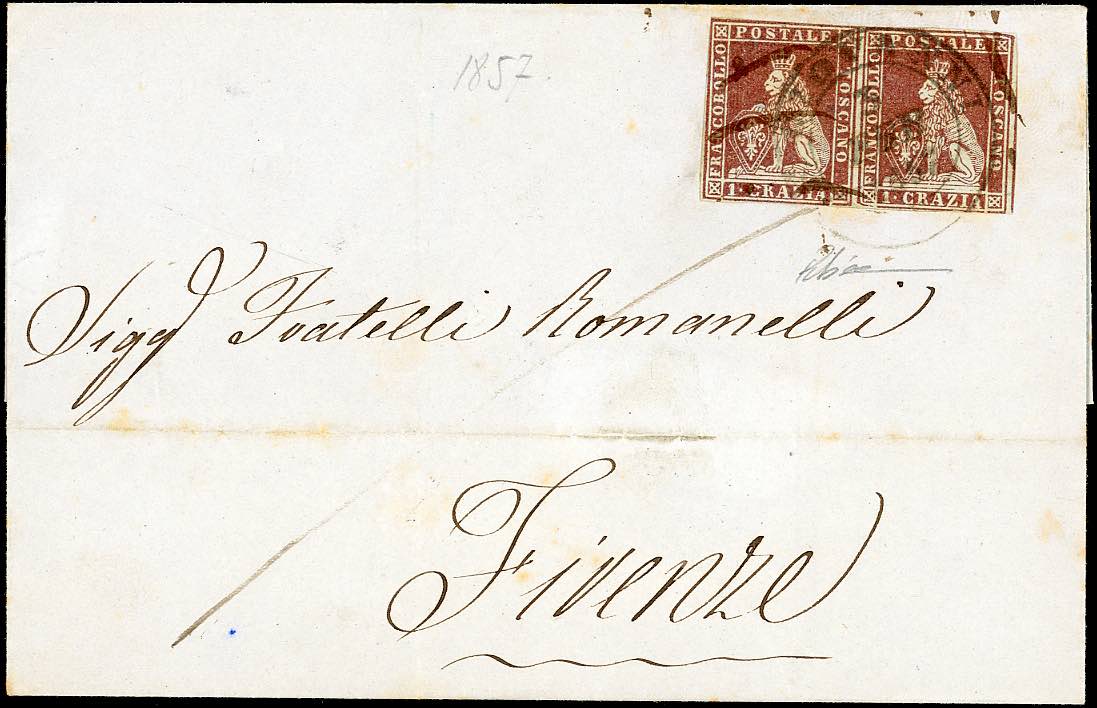 1857.
FRANCOBOLLO POSTALE TOSCANO
1 CRAZIA
FRANCOBOLLO POSTALE TOSCANO
1 CRAZIA
Sigg Fratelli Romanelli
Firenze